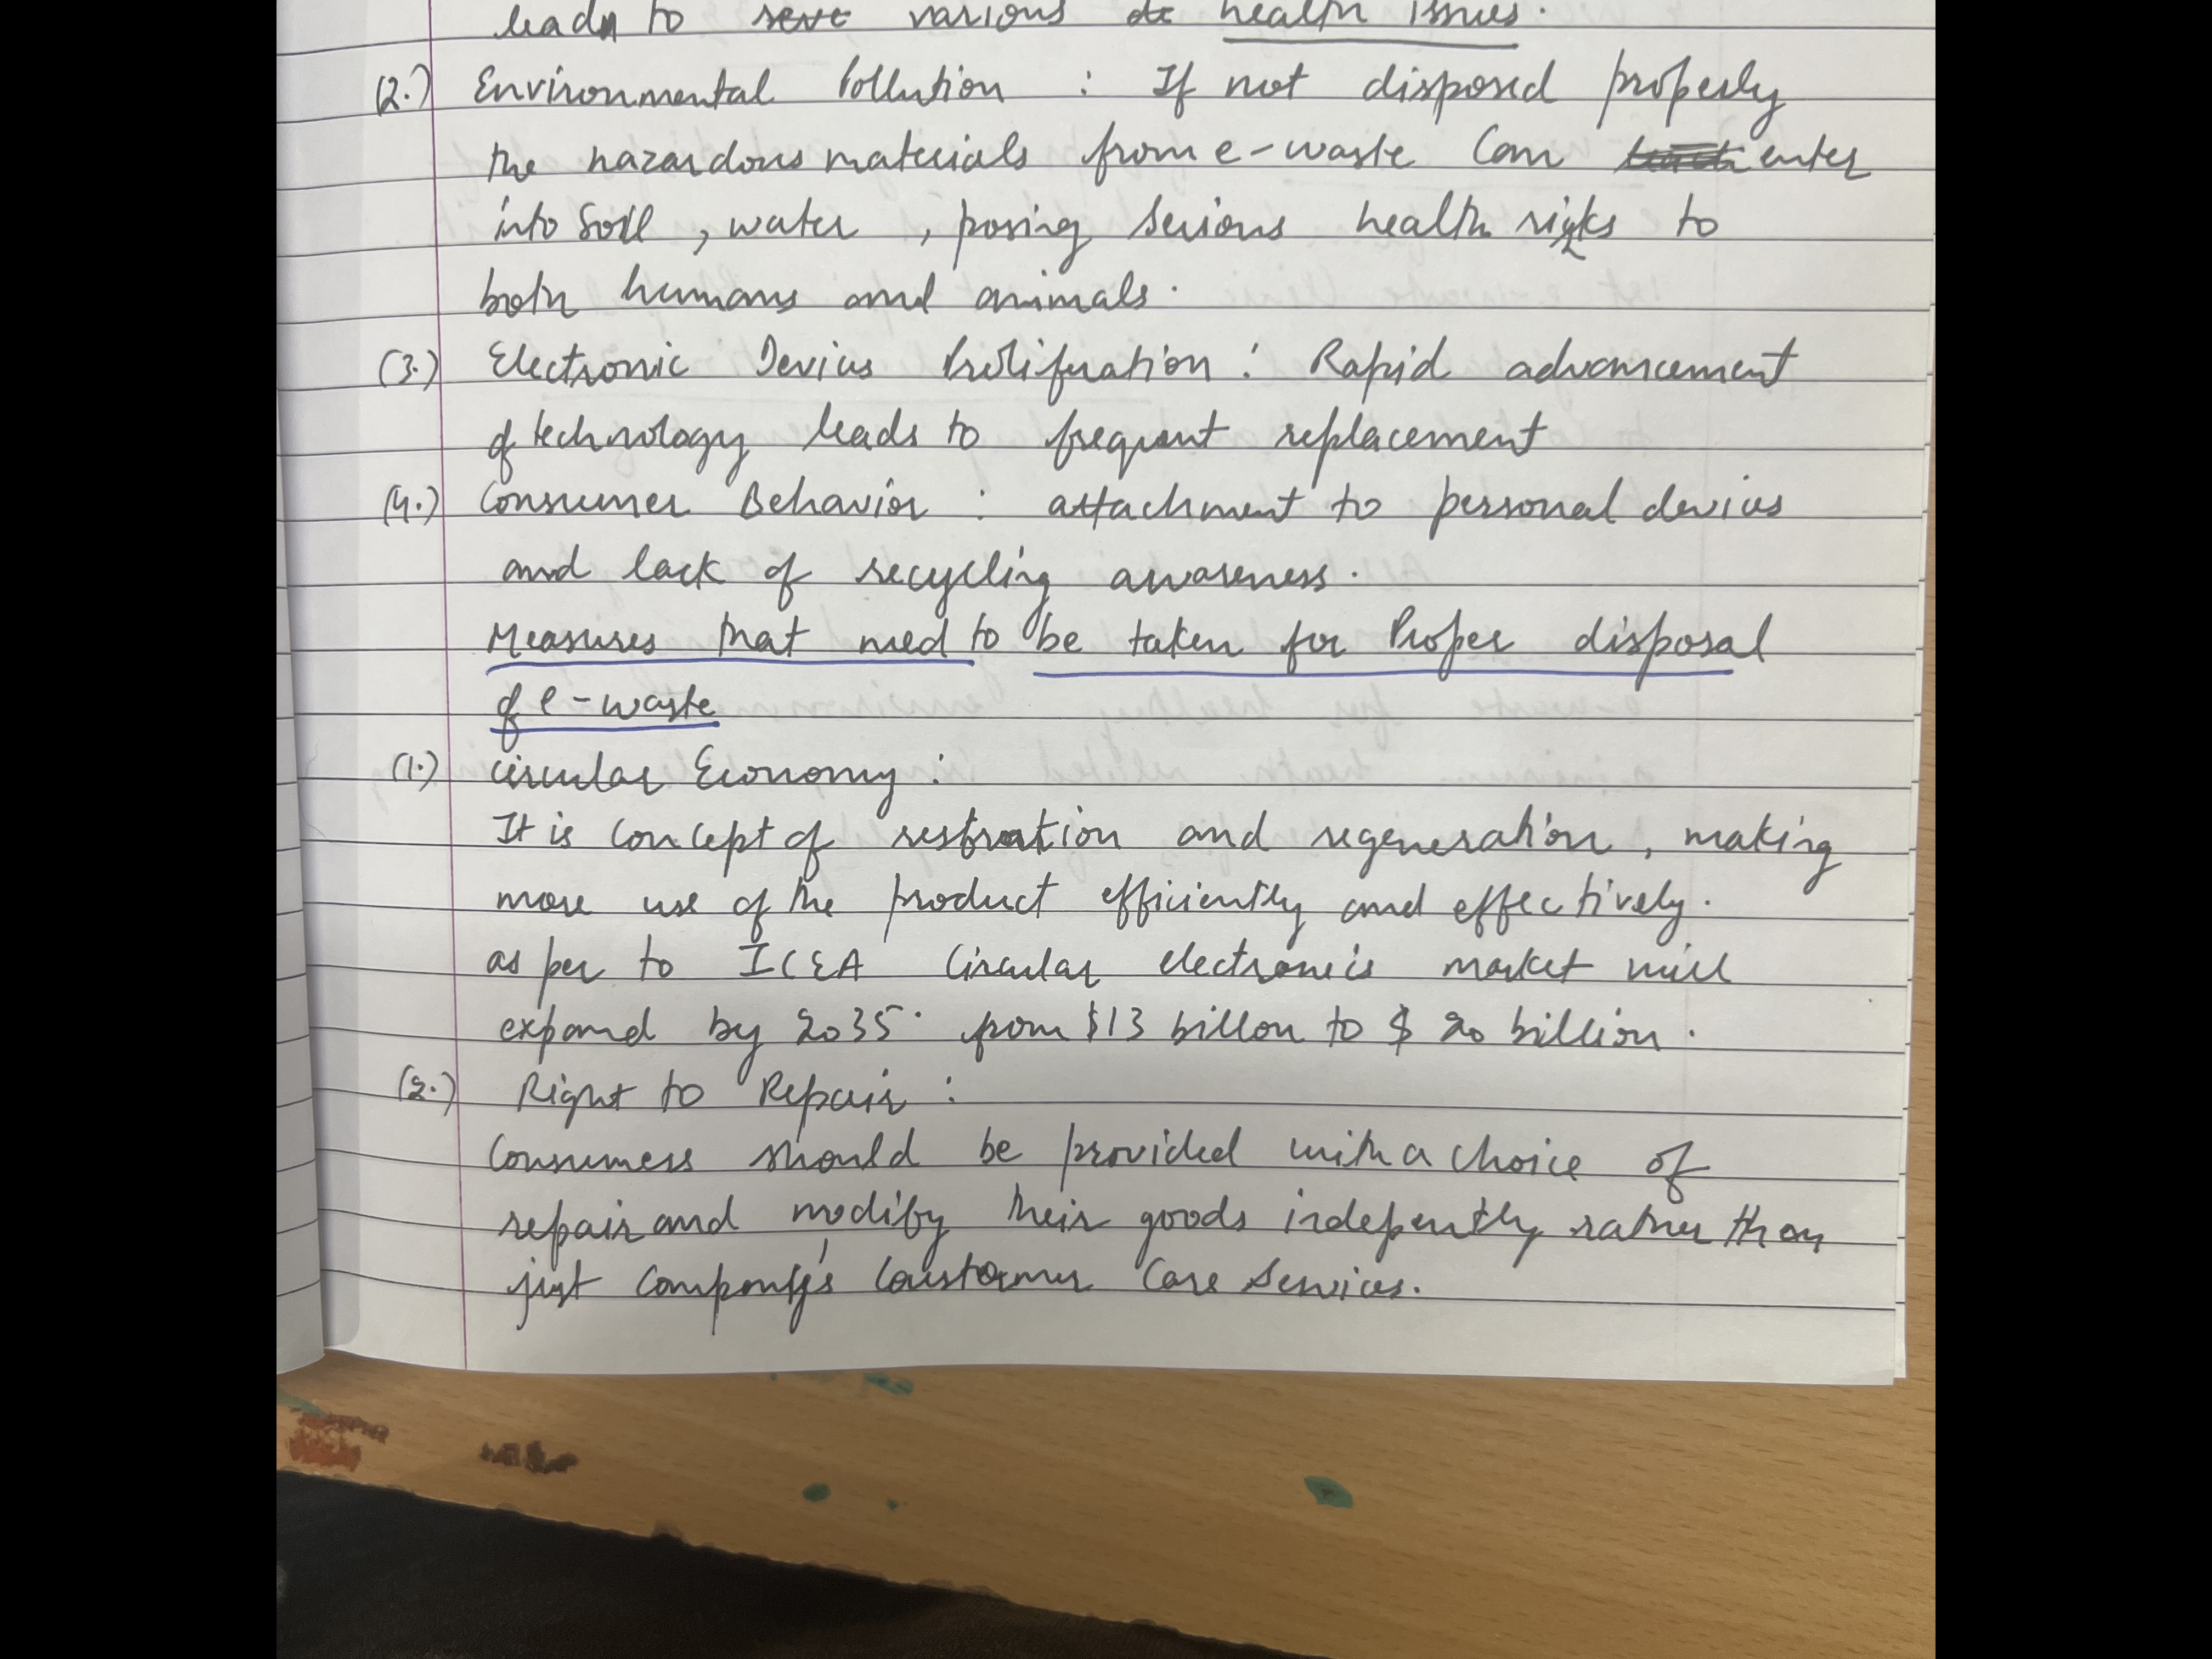 lead to various health issues.
(2.) Environmental Pollution : If not disposed properly
the hazardous materials from e-waste can enter
into soil , water , posing serious health risks to
both humans and animals.
(3.) Electronic Devices Proliferation : Rapid advancement
of technology leads to frequent replacement
(4.) Consumer Behavior : attachment to personal devices
and lack of recycling awareness.
Measures that need to be taken for Proper disposal
of e-waste
(1.) Circular Economy :
It is concept of restration and regeneration, making
more use of the product efficiently and effectively.
as per to ICEA Circular electronics market will
expand by 2035. from $13 billon to $ 20 billion.
(2.) Right to Repair :
Consumers should be provided with a choice of
repair and modify their goods indepently rather than
just Company's Customer Care Services.